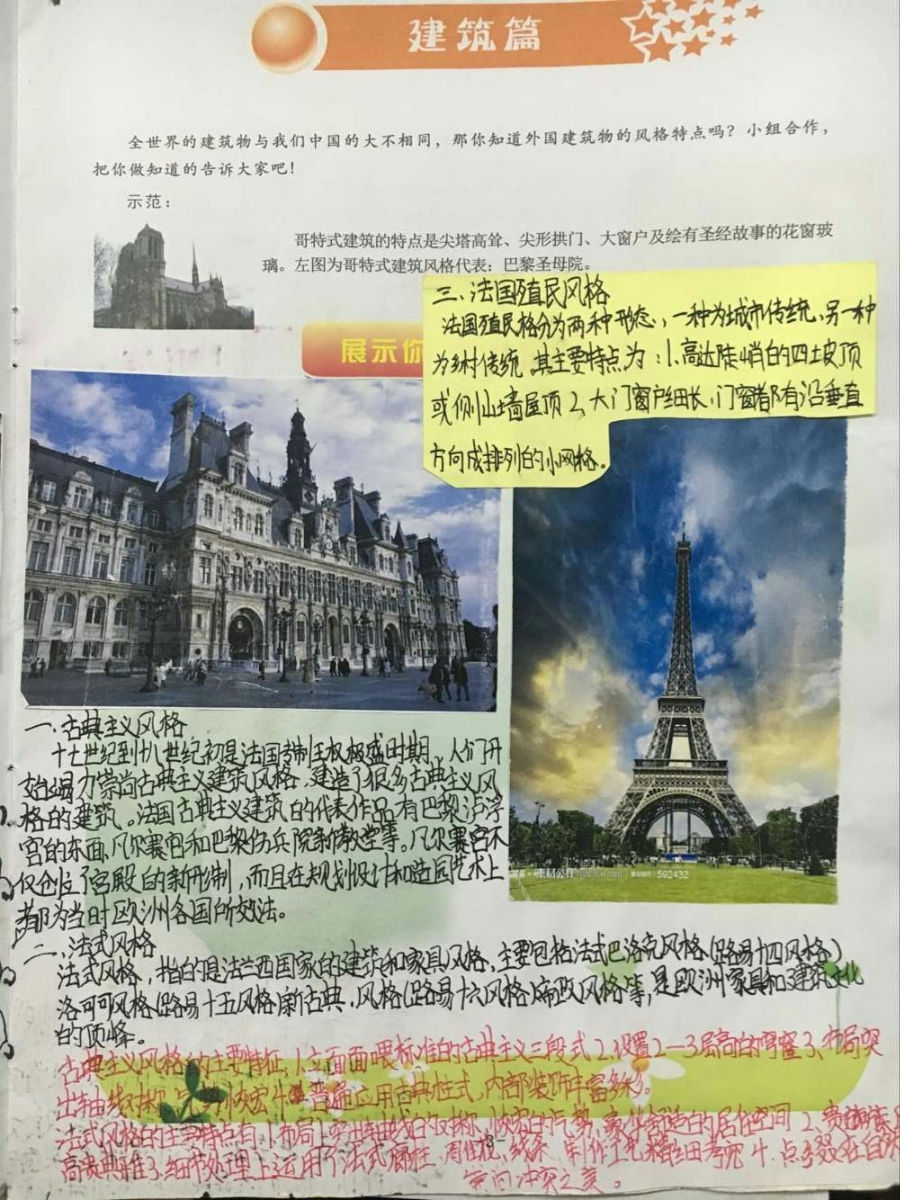 建筑篇
全世界的建筑物与我们中国的大不相同，那你知道外国建筑物的风格特点吗？小组合作，
把你做知道的告诉大家吧！
示范：
哥特式建筑的特点是尖塔高耸、尖形拱门、大窗户及绘有圣经故事的花窗玻
璃。左图为哥特式建筑风格代表：巴黎圣母院。
展示你
三、法国殖民风格
法国殖民格分为两种形态，一种为城市传统，另一种
为乡村传统，其主要特点为：1.高达陡峭的四坡顶
或侧山墙屋顶 2、大门窗户细长，门窗都有沿垂直
方向成排列的小风格。
592432
一.古典主义风格
十七世纪到十八世纪初是法国专制王权极盛时期，人们开
始竭力崇尚古典主义建筑风格，建造了很多古典主义风
格的建筑。法国古典主义建筑的代表作品有巴黎卢浮
宫的东面、凡尔赛宫和巴黎伤兵院新教堂等。凡尔赛宫不
仅创立了宫殿的新形制，而且在规划设计和造园艺术上
都为当时欧洲各国所效法。
二、法式风格
法式风格，指的是法兰西国家的建筑和家具风格，主要包括法式巴洛克风格（路易十四风格）
洛可可风格（路易十五风格）新古典，风格（路易十六风格）帝政风格等，是欧洲家具和建筑文化
的顶峰。
古典主义风格的主要特征：1.立面面喂标准的古典主义三段式 2、设置2—3层高的穹窿 3、布局突
出轴线对称 恢宏 4 普遍应用古典柱式，内部装饰丰富多彩。
法式风格的主要特点有：1.布局上突出轴线的对称，恢宏的气势，豪华舒适的居住空间 2、贵
高贵典雅 3、细节处理上运用了法式廊柱、雕花、线条，制作工艺精细考究 4.点缀在自然
之美。